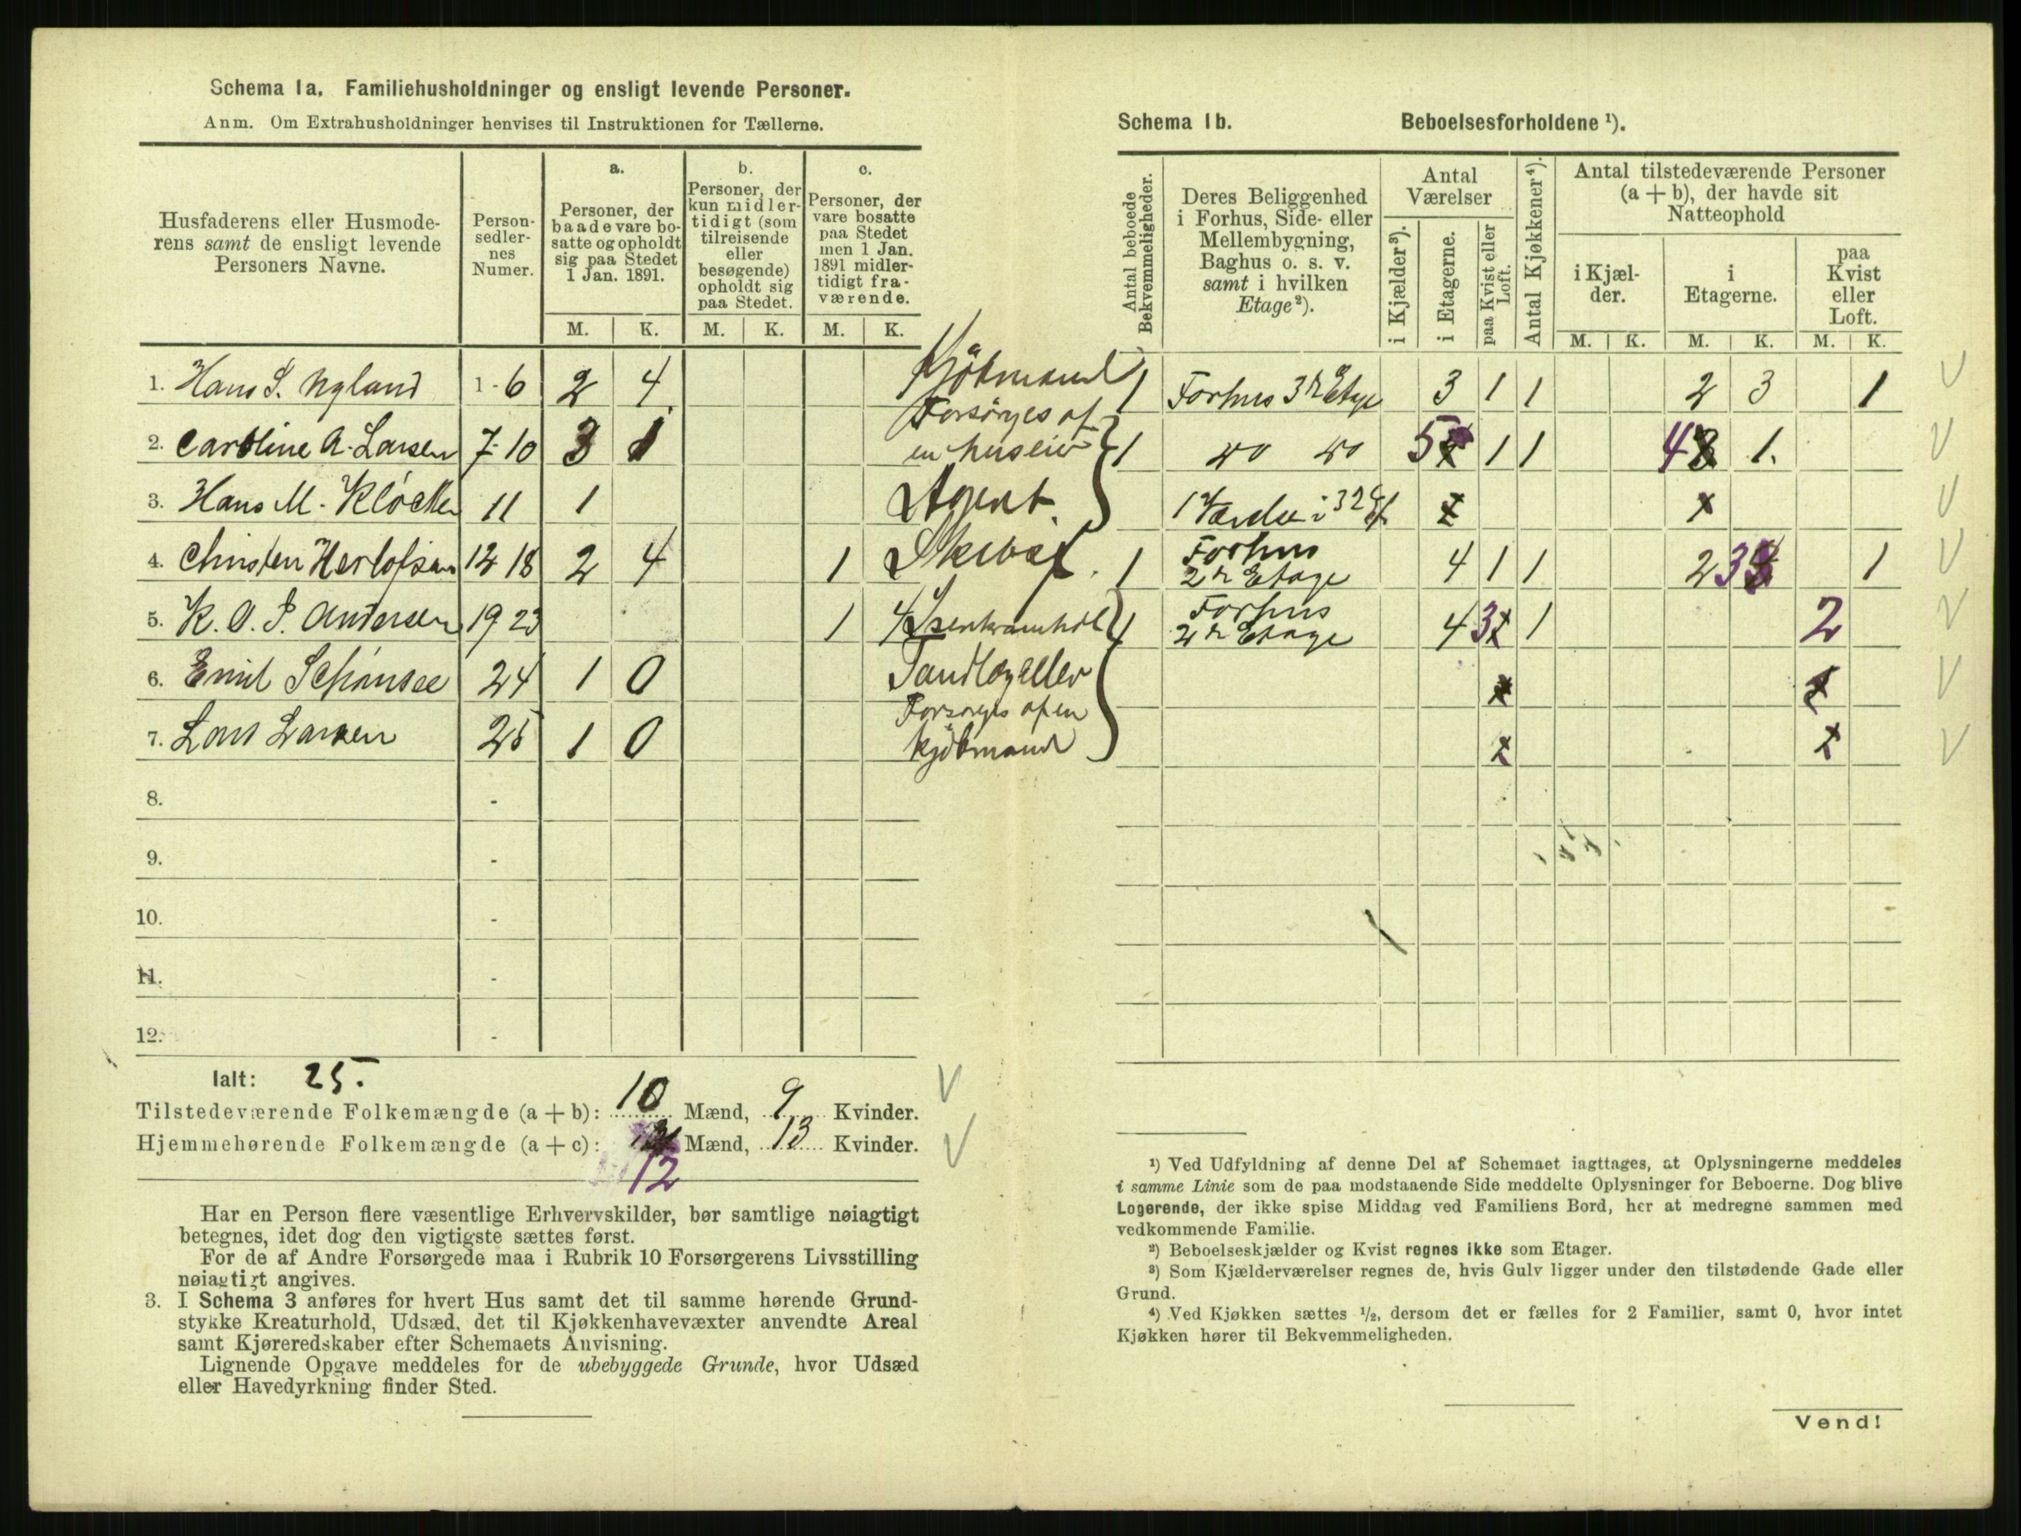 Schema 1a. Familiehusholdninger og ensligt levende Personer.
Anm. Om Extrahusholdninger henvises til Instruktionen for Tællerne.
Husfaderens eller Husmode-
rens samt de ensligt levende
Personers Navne.
Person-
sedler-
nes
Numer.
a.
Personer, der
baade vare bo-
satte og opholdt
sig paa Stedet
1 Jan. 1891.
b.
Personer, der
kun midler-
tidigt (som
tilreisende
eller
besøgende)
opholdt sig
paa Stedet.
c.
Personer, der
vare bosatte
paa Stedet
men 1 Jan.
1891 midler-
tidigt fra-
værende.
M. K. M. K. M. K.
1. Hans S. Nyland 1-6 2 4 Kjöbmand
2. Caroline A. Larsen 7-10 3 1 Forsørges af en huseier
3. Hans M. Kløcker 11 1 Agent.
4. Christen Herlofsen 12 18 2 4 1 Skibsf.
5. K. O. P. Andersen 19 23 1 4
6. Emil 24 1 0
7. Lars Larsen 25 1 0 Forsørges af en kjöbmand
8. -
9. -
10. -
11. -
12. -
Ialt: 25.
Tilstedeværende Folkemængde (a + b): 10 Mænd, 9 Kvinder.
Hjemmehørende Folkemængde (a + c): 12 Mænd, 13 Kvinder.
Har en Person flere væsentlige Erhvervskilder, bør samtlige nøiagtigt
betegnes, idet dog den vigtigste sættes først.
For de af Andre Forsørgede maa i Rubrik 10 Forsørgerens Livsstilling
nøiagtigt angives.
3. I Schema 3 anføres for hvert Hus samt det til samme hørende Grund-
stykke Kreaturhold, Udsæd, det til Kjøkkenhavevæxter anvendte Areal
samt Kjøreredskaber efter Schemaets Anvisning.
Lignende Opgave meddeles for de ubebyggede Grunde, hvor Udsæd
eller Havedyrkning finder Sted.
Schema 1b. Beboelsesforholdene ¹).
Antal beboede
Bekvemmeligheder.
Deres Beliggenhed
i Forhus, Side- eller
Mellembygning,
Baghus o. s. v.
samt i hvilken
Etage²).
Antal
Værelser
i Kjælder³).
i Etagerne.
paa Kvist eller
Loft.
Antal Kjøkkener⁴).
Antal tilstedeværende Personer
(a + b), der havde sit
Natteophold
i Kjæl-
der.
i
Etagerne.
paa
Kvist
eller
Loft.
M. K. M. K. M. K.
1 Forhus 3 Etage 3 1 1 2 3 1
1 do do 5 1 1 4 1.
1 Værelse i 3
1 Forhus 2 Etage 4 1 1 2 3 1
1 Forhus 2 Etage 4 3 1 2
¹) Ved Udfyldning af denne Del af Schemaet iagttages, at Oplysningerne meddeles
i samme Linie som de paa modstaaende Side meddelte Oplysninger for Beboerne. Dog blive
Logerende, der ikke spise Middag ved Familiens Bord, her at medregne sammen med
vedkommende Familie.
²) Beboelseskjælder og Kvist regnes ikke som Etager.
³) Som Kjælderværelser regnes de, hvis Gulv ligger under den tilstødende Gade eller
Grund.
⁴) Ved Kjøkken sættes ½, dersom det er fælles for 2 Familier, samt 0, hvor intet
Kjøkken hører til Bekvemmeligheden.
Vend!